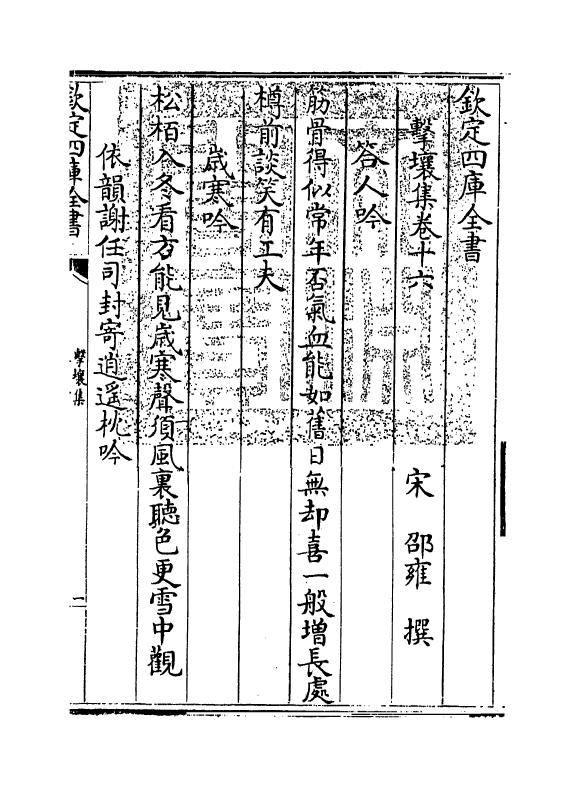 欽定四庫全書
擊壤集卷十六
宋 邵雍 撰
答人吟
筋骨得似常年否氣血能如舊日無却喜一般增長處
樽前談笑有工夫
歳寒吟
松栢入冬看方能見歳寒聲須風裏聽色更雪中觀
依韻謝任司封寄逍遥枕吟
欽定四庫全書
擊壤集